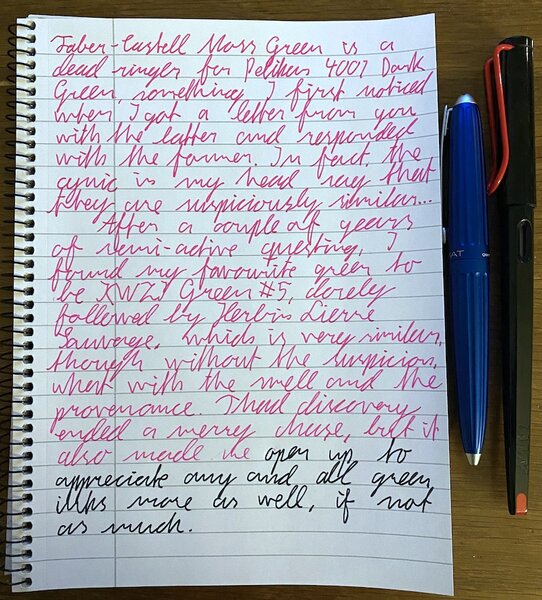 Faber-Castell Moss Green is a
dead ringer for Pelikan 4001 Dark
Green, something I first noticed
when I got a letter from you
with the latter and responded
with the former. In fact, the
cynic in my head say that
they are suspiciously similar...
After a couple of years
of semi-active questing, I
found my favourite green to
be KWZI Green #5, closely
followed by Herbin Lierre
Sauvage, which is very similar,
though without the suspicion,
what with the smell and the
provenance. That discovery
ended a merry chase, but it
also made me open up to
appreciate any and all green
inks more as well, if not
as much.